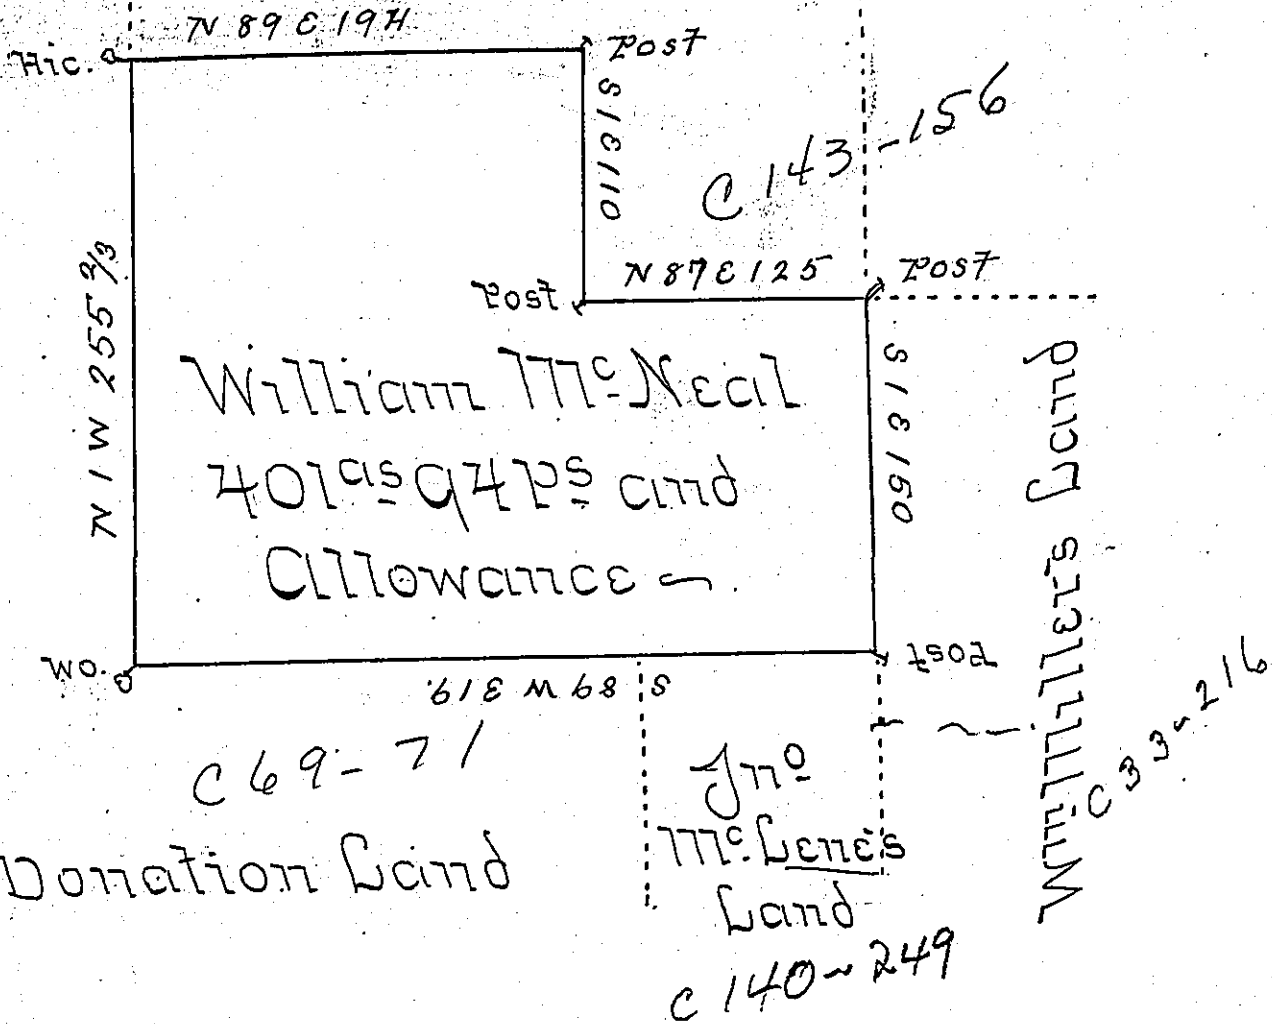 N 89 E 194
Hic.
Post
S 1 E 110
C 143-156
N 87 E 125
Post
Post
N 1 W 255 2/3
William Mc Neal
401 as 94 ps and
Allowance
S 1 E 150
Wm. Miller's Land
C 33-216
Wo.
Post
S 89 W 319.
C 69-71
Donation Land
Jno
Mc. Lene's
Land
C 140-249